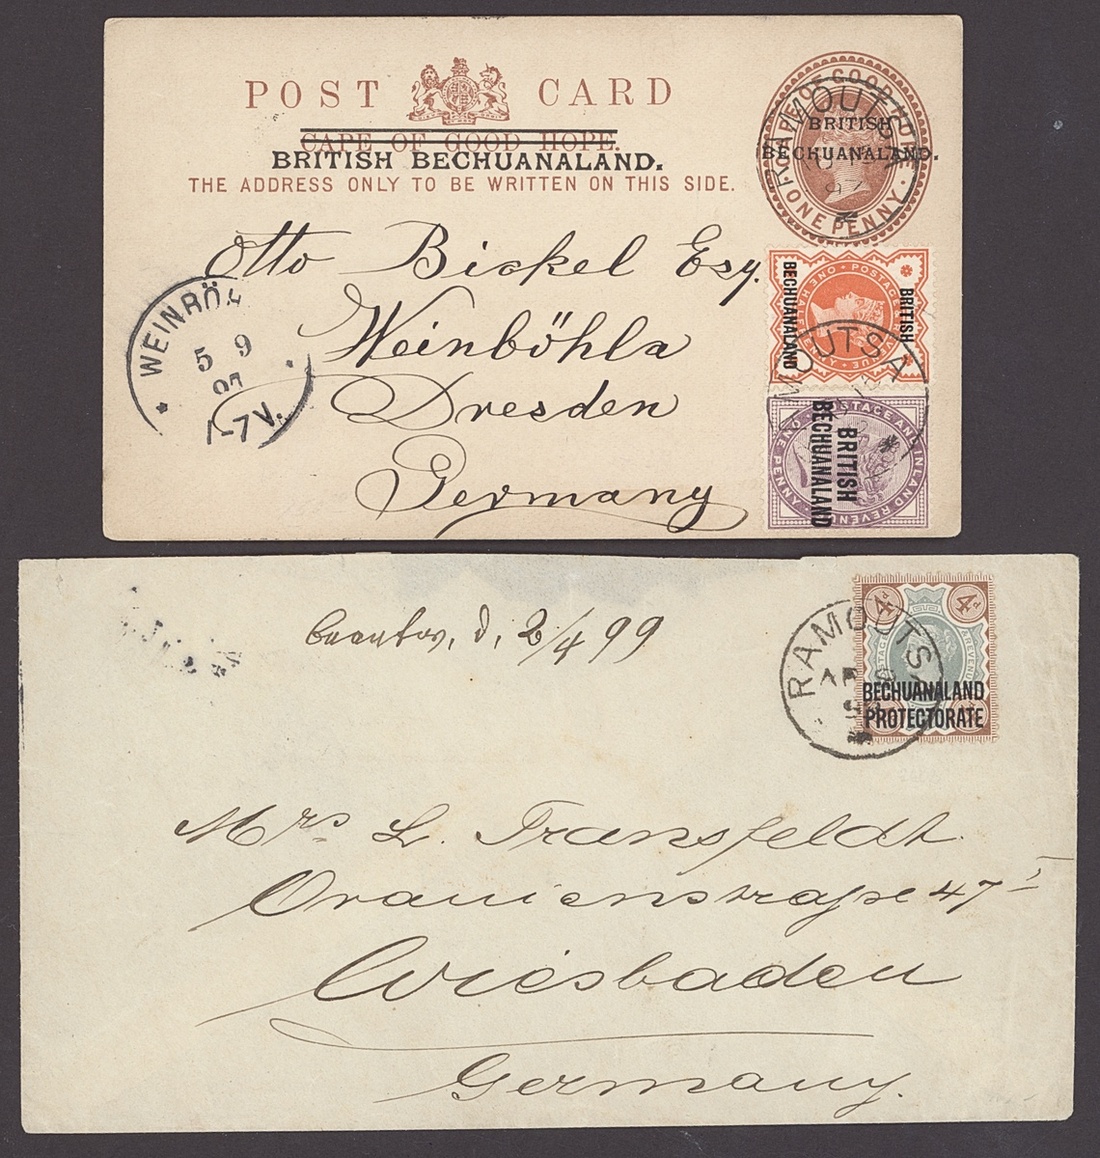 POST CARD
CAPE OF GOOD HOPE.
BRITISH BECHUANALAND.
THE ADDRESS ONLY TO BE WRITTEN ON THIS SIDE.
CAPE OF GOOD HOPE
ONE PENNY.
BRITISH
BECHUANALAND.
RAMOUTSA
97
Otto Bickel Esq.
Weinböhla
Dresden
Germany
WEINBÖ
5 9
97
-7V.
BRITISH
BECHUANALAND
POSTAGE
ONE HALF
MOUTSA
BRITISH
BECHUANALAND
POSTAGE AND INLAND REVENUE
ONE PENNY
2/4 99
4d 4d
POSTAGE & REVENUE
BECHUANALAND
PROTECTORATE
RAMOUTS
AP
Mrs L. Transfeldt
Oranienstraße 47 I
Wiesbaden
Germany.